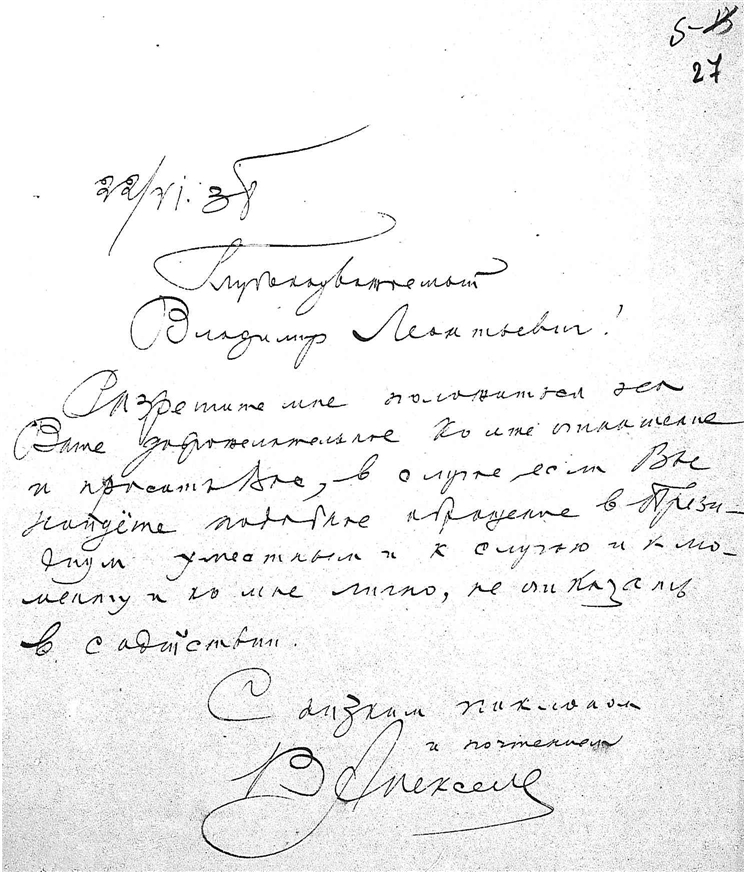 5-13
27
22/VI. 38
Глубокоуважаемый
Владимир Леонтьевич!
Разрешите мне положиться на
Ваше доброжелательное ко мне отношение
и просить Вас, в случае, если Вы
найдёте подобное обращение в Прези-
диум уместным и к случаю и к мо-
менту и ко мне лично, не отказать
в содействии.
С низким поклоном
и почтением
В Алексеев